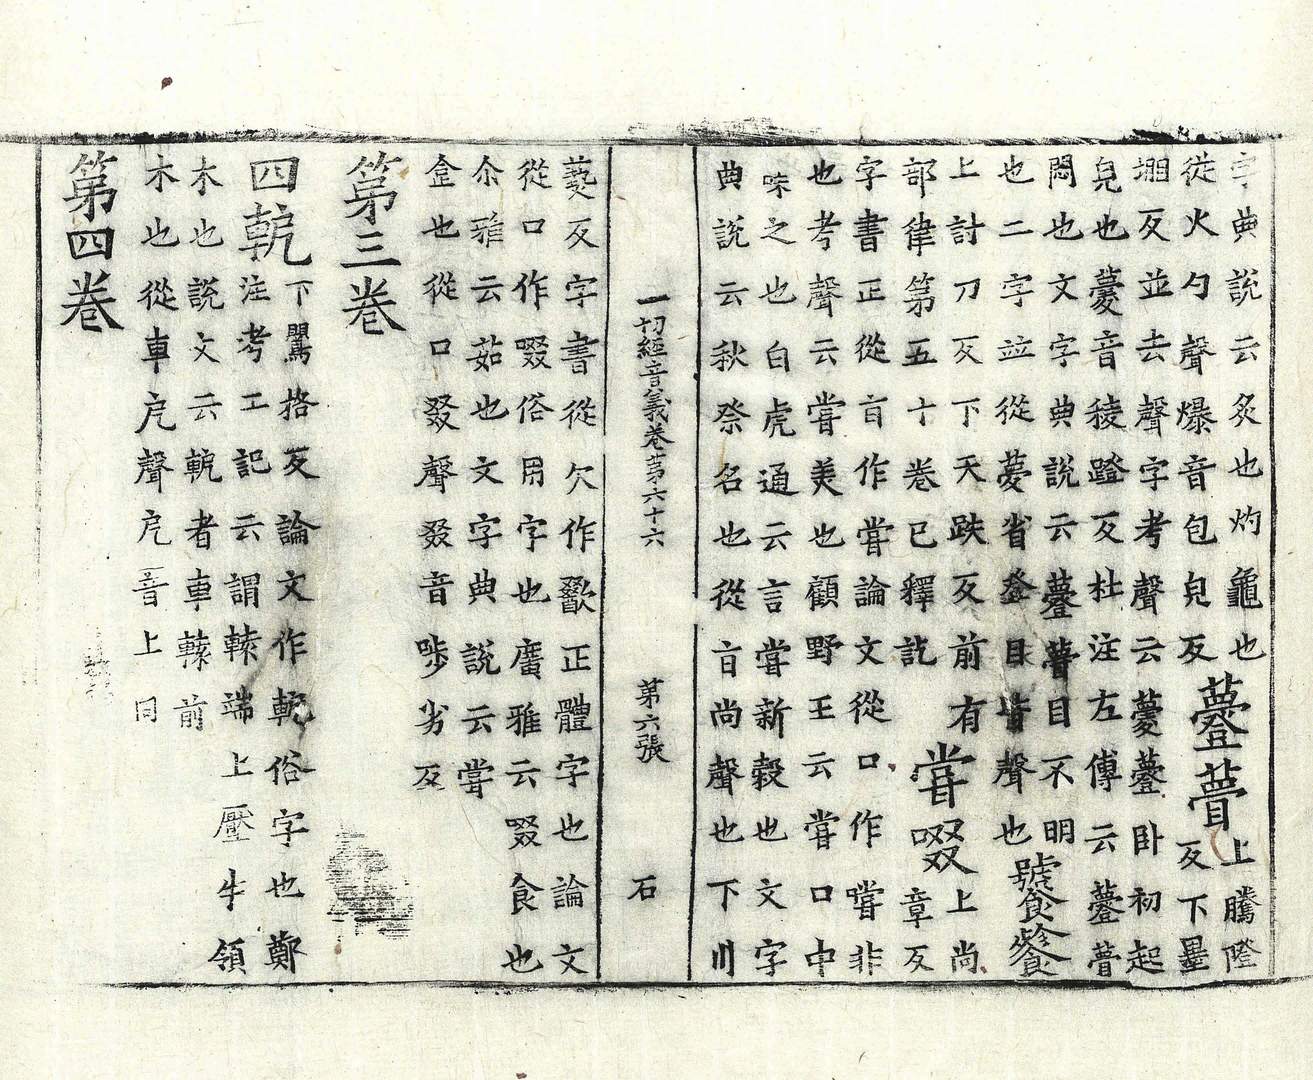 字典說云炙也灼龜也
從火勺聲爆音包皃反 薹瞢 上騰隥
堋反並去聲字考聲云薹䒳卧初起
皃也薹音稜蹬反杜注左傳云䒳瞢
悶也文字典說云䒳瞢目不明
也二字並從夢省登目皆聲也 饕餮
上討刀反下天跌反前有
部律第五十卷已釋訖 甞啜 上尚章反
字書正從㫖作甞論文從口作嚐非
也考聲云甞美也顧野王云甞口中
味之也白虎通云言甞新穀也文字
典說云秋祭名也從㫖尚聲也下川
一切經音義卷第六十六 第六張 石
爇反字書從欠作歠正體字也論文
從口作啜俗用字也廣雅云啜食也
尒雅云茹也文字典說云甞
㿝也從口叕聲叕音陟劣反
第三卷
四軶 下鸎格反論文作軛俗字也鄭
注考工記云謂轅端上壓牛領
木也說文云軶者車轅前
木也從車戹聲戹音上同
第四卷